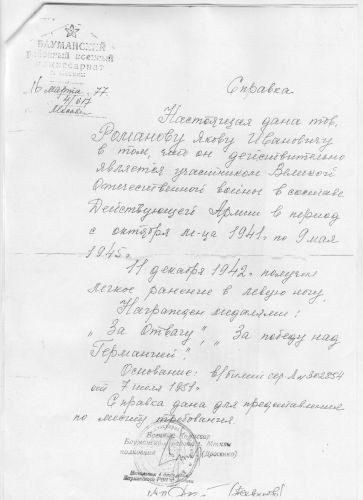 БАУМАНСКИЙ
районный военный
комиссариат
г. Москвы
16 марта 77
4/617
Москва
Справка
Настоящая дана тов.
Романову Якову Ивановичу
в том, что он действительно
является участником Великой
Отечественной войны в составе
Действующей Армии в период
с октября м-ца 1941г по 9 мая
1945г.
11 декабря 1942г. получил
легкое ранение в левую ногу.
Награжден медалями:
„За Отвагу", „За победу над
Германией".
Основание: в/билет сер
от 7 июля 1951г.
Справка дана для предоставления
по месту требования.
Военный Комиссар
Бауманского района г. Москвы
полковник